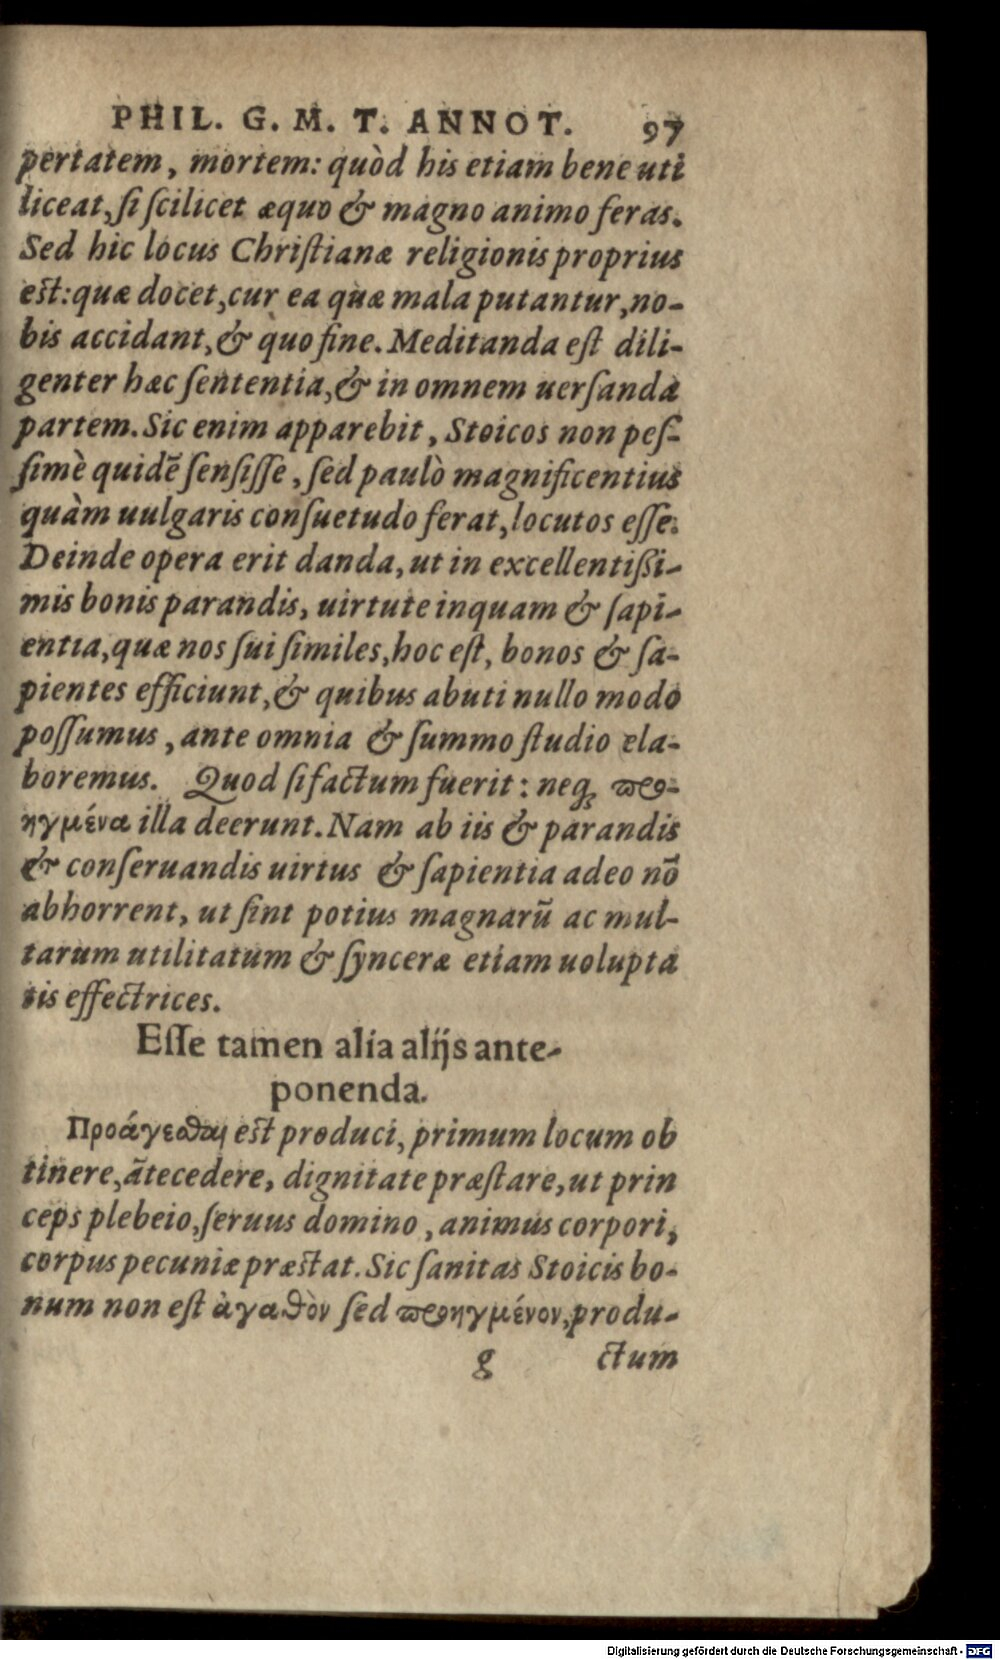 PHIL. G. M. T. ANNOT. 97
pertatem, mortem: quòd his etiam bene uti
liceat, si scilicet æquo & magno animo feras.
Sed hic locus Christianæ religionis proprius
est: quæ docet, cur ea quæ mala putantur, no-
bis accidant, & quo fine. Meditanda est dili-
genter hæc sententia, & in omnem uersanda
partem. Sic enim apparebit, Stoicos non pes-
simè quidē sensisse, sed paulò magnificentius
quàm uulgaris consuetudo ferat, locutos esse.
Deinde opera erit danda, ut in excellentissi-
mis bonis parandis, uirtute inquam & sapi-
entia, quæ nos sui similes, hoc est, bonos & sa-
pientes efficiunt, & quibus abuti nullo modo
possumus, ante omnia & summo studio ela-
boremus. Quod si factum fuerit: neqꝫ προ-
ηγμένα illa deerunt. Nam ab iis & parandis
& conseruandis uirtus & sapientia adeo nō
abhorrent, ut sint potius magnarū ac mul-
tarum utilitatum & synceræ etiam uolupta
tis effectrices.
Esse tamen alia alijs ante-
ponenda.
Προάγεσθαι est produci, primum locum ob
tinere, ātecedere, dignitate præstare, ut prin
ceps plebeio, seruus domino, animus corpori,
corpus pecuniæ præstat. Sic sanitas Stoicis bo-
num non est ἀγαθὸν sed προηγμένον, produ-
g ctum
Digitalisierung gefördert durch die Deutsche Forschungsgemeinschaft - DFG